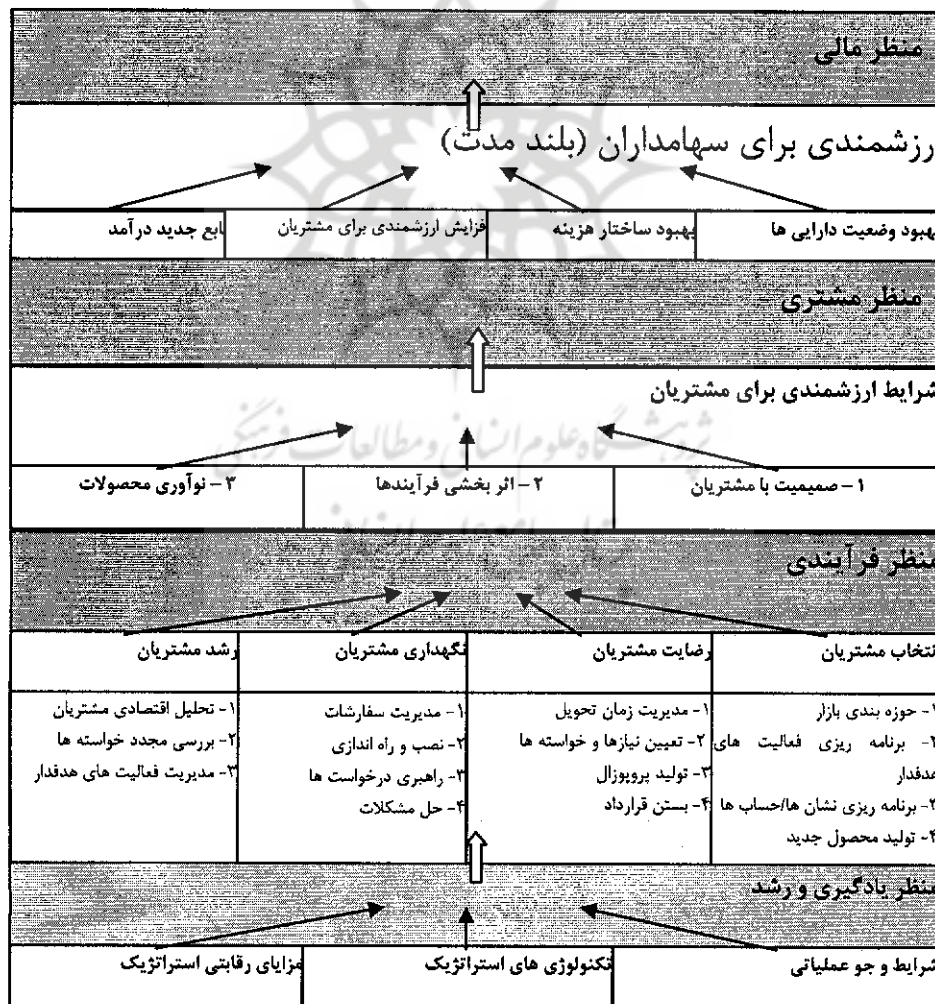 منظر مالی
ارزشمندی برای سهامداران (بلند مدت)
بهبود وضعیت دارایی ها
بهبود ساختار هزینه
افزایش ارزشمندی برای مشتریان
منابع جدید درآمد
منظر مشتری
شرایط ارزشمندی برای مشتریان
پژوهشگاه علوم انسانی و مطالعات فرهنگی
۱- صمیمیت با مشتریان
۲- اثر بخشی فرآیندها
۳- نوآوری محصولات
منظر فرآیندی
انتخاب مشتریان
رضایت مشتریان
نگهداری مشتریان
رشد مشتریان
۱- حوزه بندی بازار
۲- برنامه ریزی فعالیت های
هدفدار
۳- برنامه ریزی نشان ها/حساب ها
۴- تولید محصول جدید
۱- مدیریت زمان تحویل
۲- تعیین نیازها و خواسته ها
۳- تولید پروپوزال
۴- بستن قرارداد
۱- مدیریت سفارشات
۲- نصب و راه اندازی
۳- راهبری درخواست ها
۴- حل مشکلات
۱- تحلیل اقتصادی مشتریان
۲- بررسی مجدد خواسته ها
۳- مدیریت فعالیت های هدفدار
منظر یادگیری و رشد
شرایط و جو عملیاتی
تکنولوژی های استراتژیک
مزایای رقابتی استراتژیک